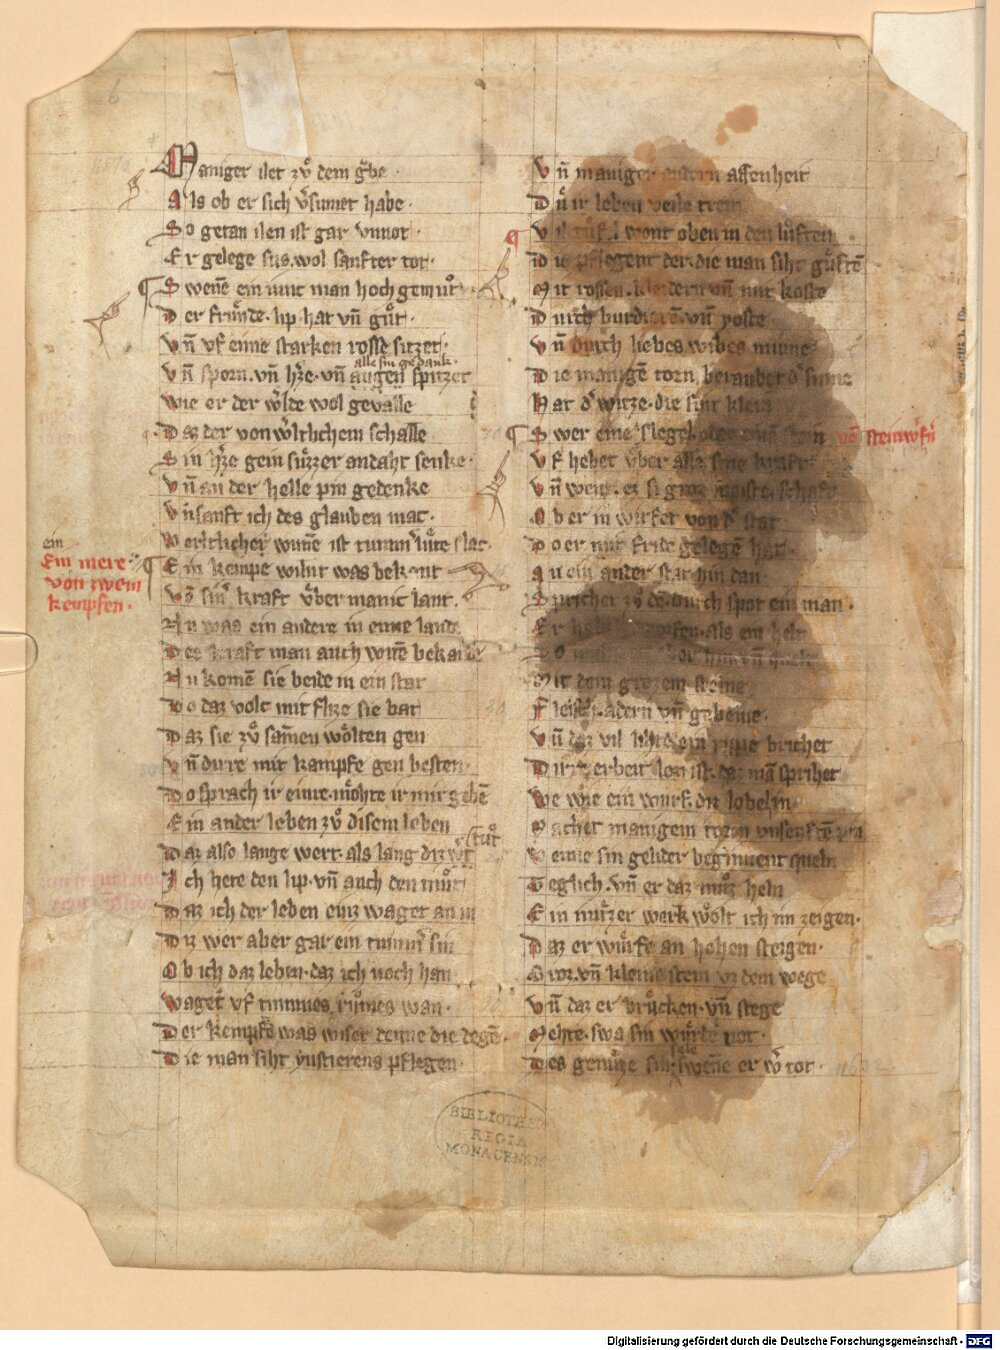 Maniger ilet zuͦ dem gͣbe
Als ob er sich v̓sumet habe·
So getan ilen ist gar vnnot·
Er gelege sus wol sanfter tot·
Swenne ein iunc man hoch gemuͦt
Der fruͤnde· lip hat vn̄ guͦt·
Vn̄ vf eime starken rosse sitzet·
alle sin gedank·
Vn̄ sporn· vn̄ h̓ze· vn̄ augen spitzet
Wie er der w̓lde wol gevalle
Daz der von w̓ltlichem schalle
Sin h̓ze gein suͤzzer andaht senke·
Vn̄ an der helle pin gedenke
Vn̄ sanft ich des glauben mac·
Werltlicher wunne ist tummer luͤte slac
ein
Ein mere
von zwein
kempfen·
Ein kempe wilnt was bekant
Von siner kraft vͤber manic lant·
Nu was ein andere in eime lande
Des kraft man auch wunē bekande
Nu komē sie beide in ein stat
Do daz volc mit flize sie bat
Daz sie zuͦ samen woͤlten gen
Vn̄ dirre mit kampfe gen besten
Do sprach ir eime· moͤhte ir mir gebē
Ein ander leben zuͦ disem leben
Daz also lange wert· als lang diz w̓t
Ich here den lip· vn̄ auch den muͦt
Daz ich der leben einz waget an in
Diz wer aber gar ein tumm̓ sin
Ob ich daz leben· daz ich noch han
Waget vf tummes ruͦmes wan·
Der kempfe was wiser denne die degē
Die man siht yustierens pflegen·
Vn̄ maniger andern affenheit
Duͦ ir leben veile treit
wont oben in den luͤften
Die pflegent der· die man siht guͤften
Mit rossen· kleidern vn̄ mit koste
Durch burdieren· vn̄ yoste
Vn̄ durch liebes wibes minne
Die manigē torn berauber d̓ sinne
Hat d̓ witze· die sint klein
Swer eine slegel oder einen stein
von steinw̓fn̄
Vf hebet vͤber alle sine kraft
Vn̄ wenet ez si groz meisterschaft
Aber in wirfet von d̓ stat
Do er mit fride gelegē hat·
An ein ander stat hin dan·
Sprichet zuͦ dē durch spot ein man·
Er hat geworfen· als ein helt
Mit dem grozem steine
Fleisch· adern vn̄ gebeine·
Vn̄ daz vil liht ein rippe brichet
Dirre erbeit lon ist· daz man sprihet
We wie ein wurf· diz lobelin·
Machet manigem torn vnsenftē pin
Wenne sin gelider beginnent queln
Teglich· vn̄ er daz muͦz heln
Ein nuͤtzer werk woͤlt ich im zeigen·
Daz er wuͤrfe an hohen steigen·
Groz· vn̄ kleine stein vz dem wege
Vn̄ da er bruͤcken· vn̄ stege
Mehte· swa sin wuͤrde not·
sele
Des genuͤzze sin wenne er w̓ tot·
BIBLIOTHECA
REGIA
MONACENSIS
Digitalisierung gefördert durch die Deutsche Forschungsgemeinschaft - DFG